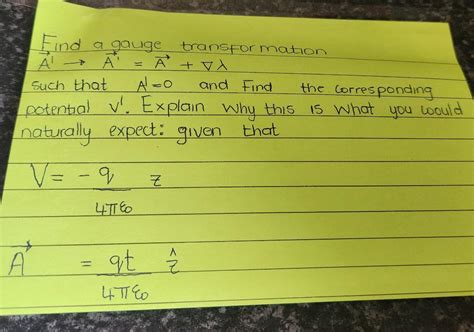 Find a gauge transformation
A⃗' → A⃗' = A⃗ + ∇λ
such that A'=0 and Find the corresponding
potential V'. Explain why this is what you would
naturally expect: given that
V = - q/4πε₀ z
A⃗ = qt/4πε₀ ẑ